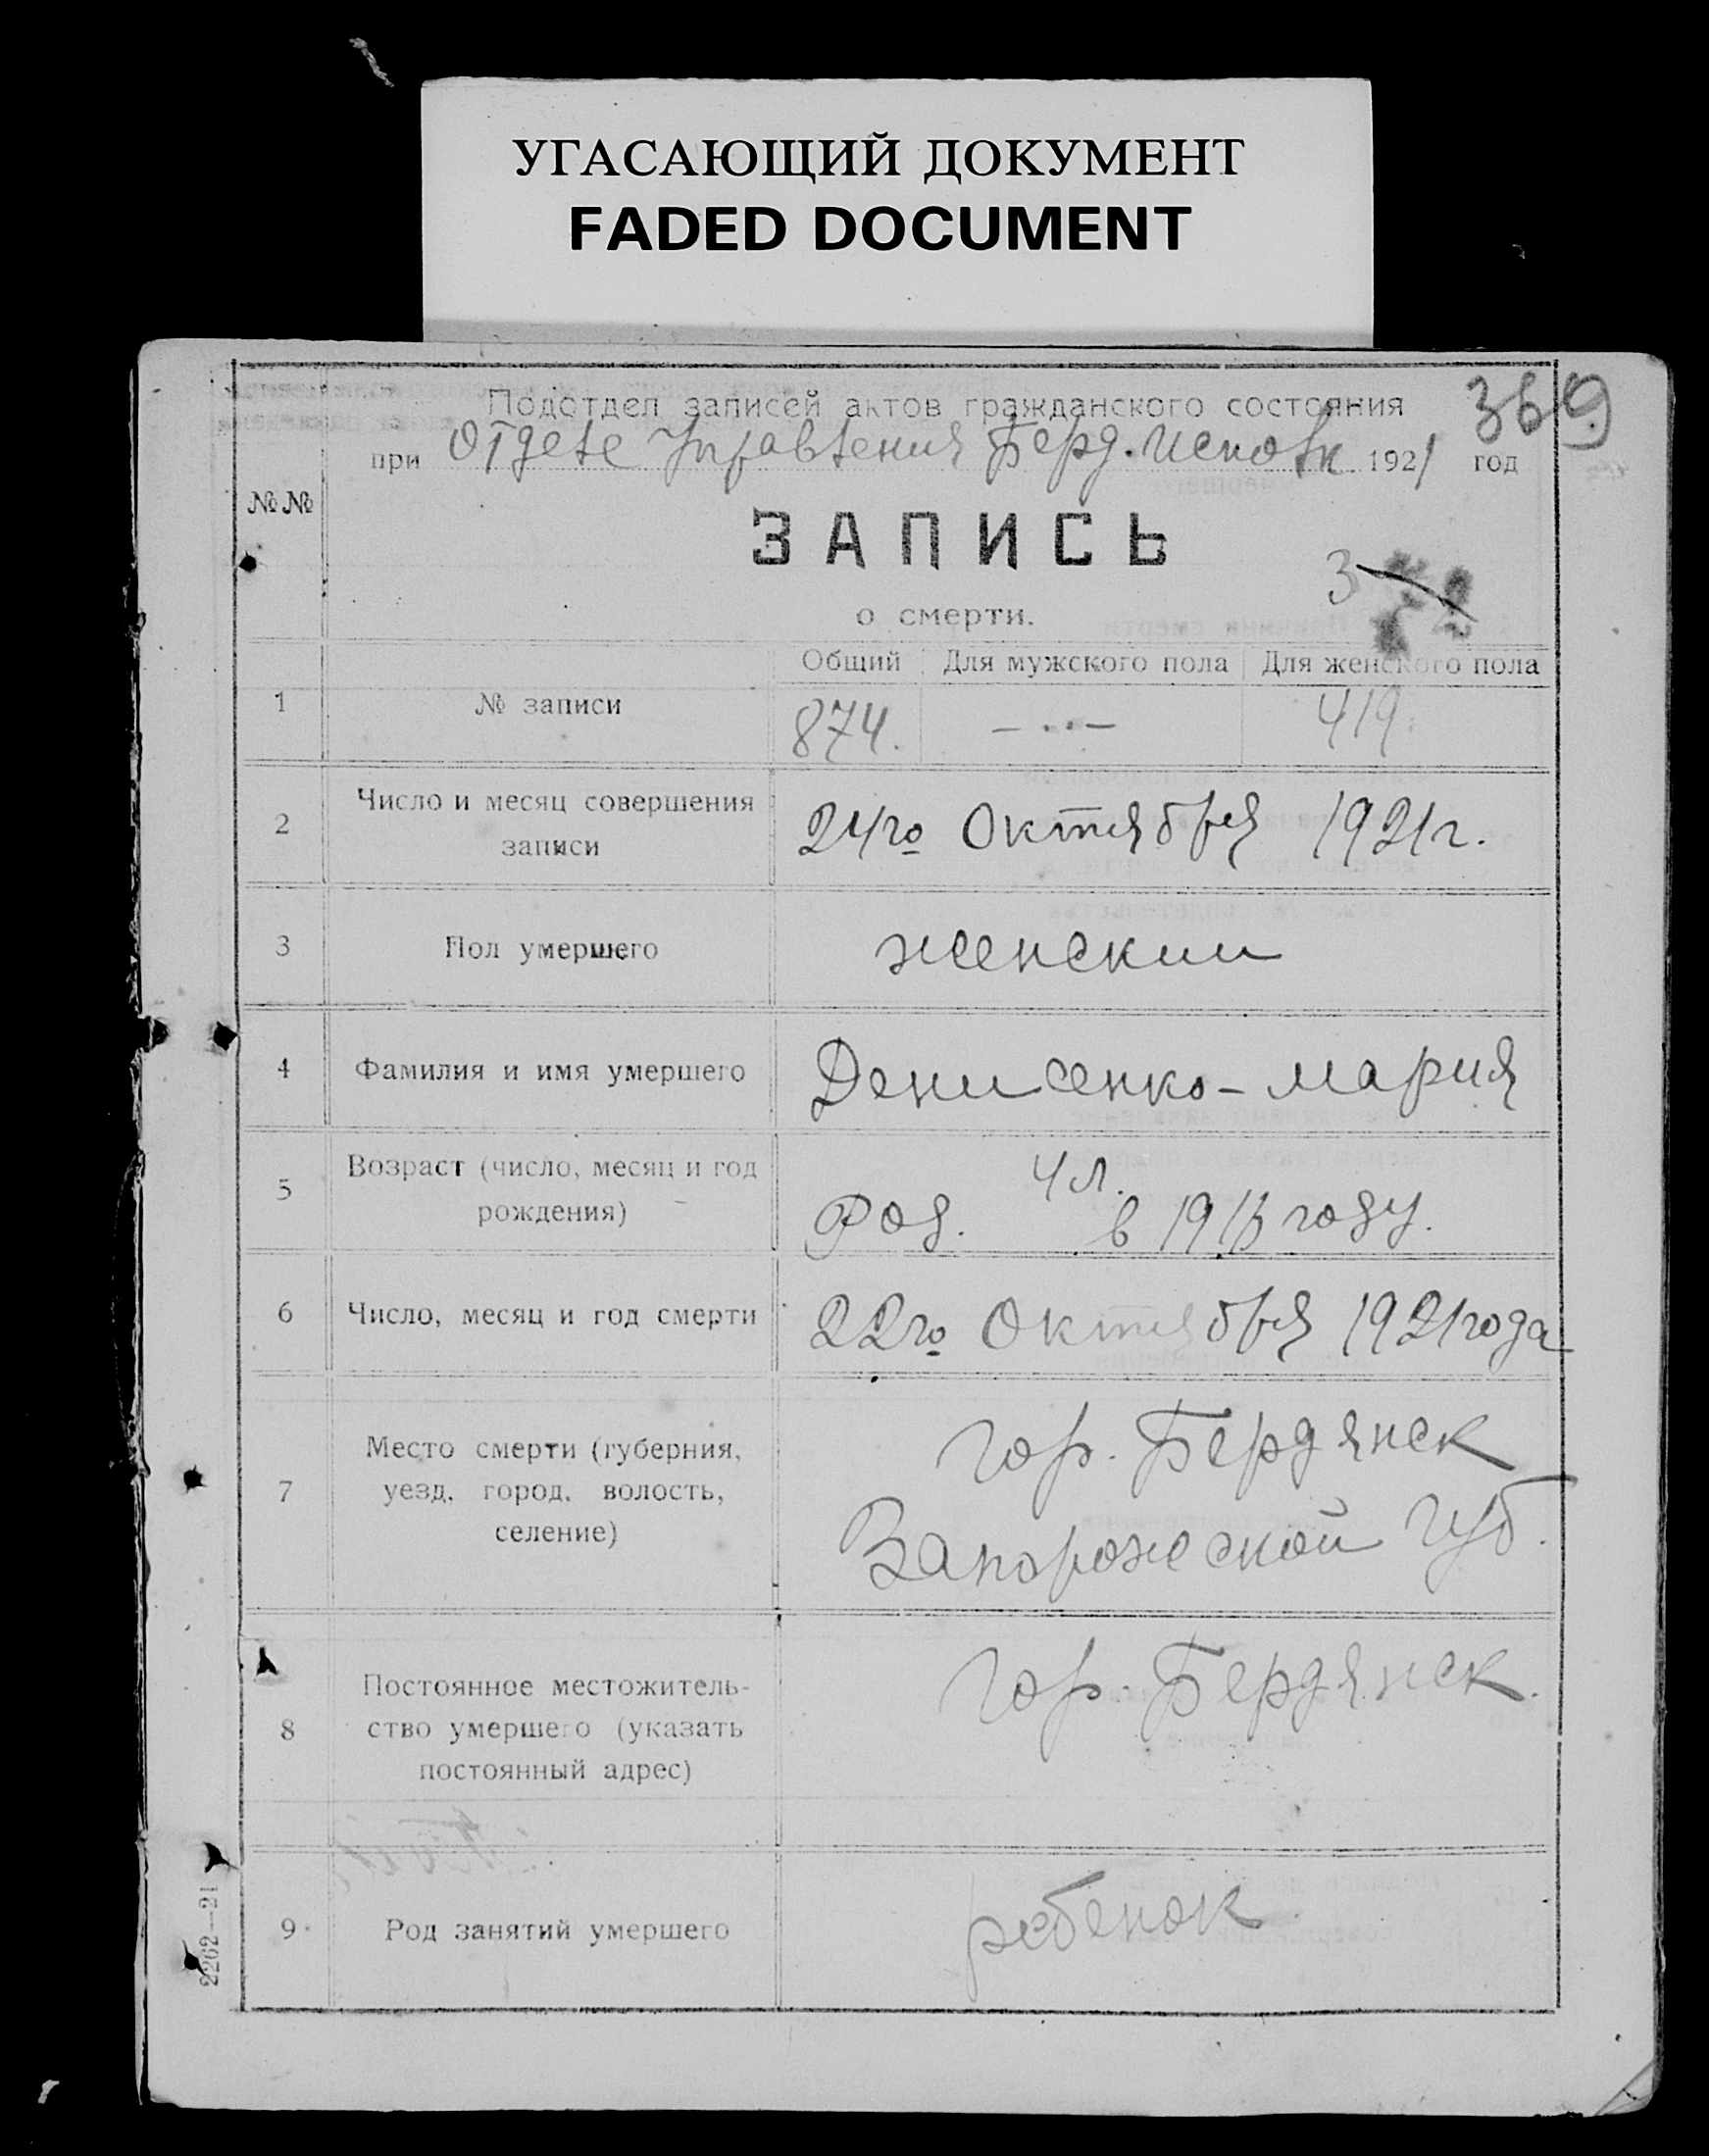 УГАСАЮЩИЙ ДОКУМЕНТ
FADED DOCUMENT
369
Подотдел записей актов гражданского состояния
при Отделе Управления Берд. Исполк 1921 год
№№
ЗАПИСЬ
о смерти.
Общий Для мужского пола Для женского пола
1 № записи 874. — 419
2 Число и месяц совершения
записи
24го Октября 1921 г.
3 Пол умершего женский
4 Фамилия и имя умершего Денисенко - Мария
5 Возраст (число, месяц и год
рождения)
4 л.
Род. в году.
6 Число, месяц и год смерти 22го Октября 1921 года
7 Место смерти (губерния,
уезд, город, волость,
селение)
гор. Бердянск
Запорожской Губ.
8 Постоянное местожитель-
ство умершего (указать
постоянный адрес)
гор. Бердянск.
9 Род занятий умершего ребенок
2262—21